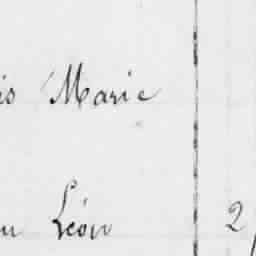 is Marie
u Léon 2